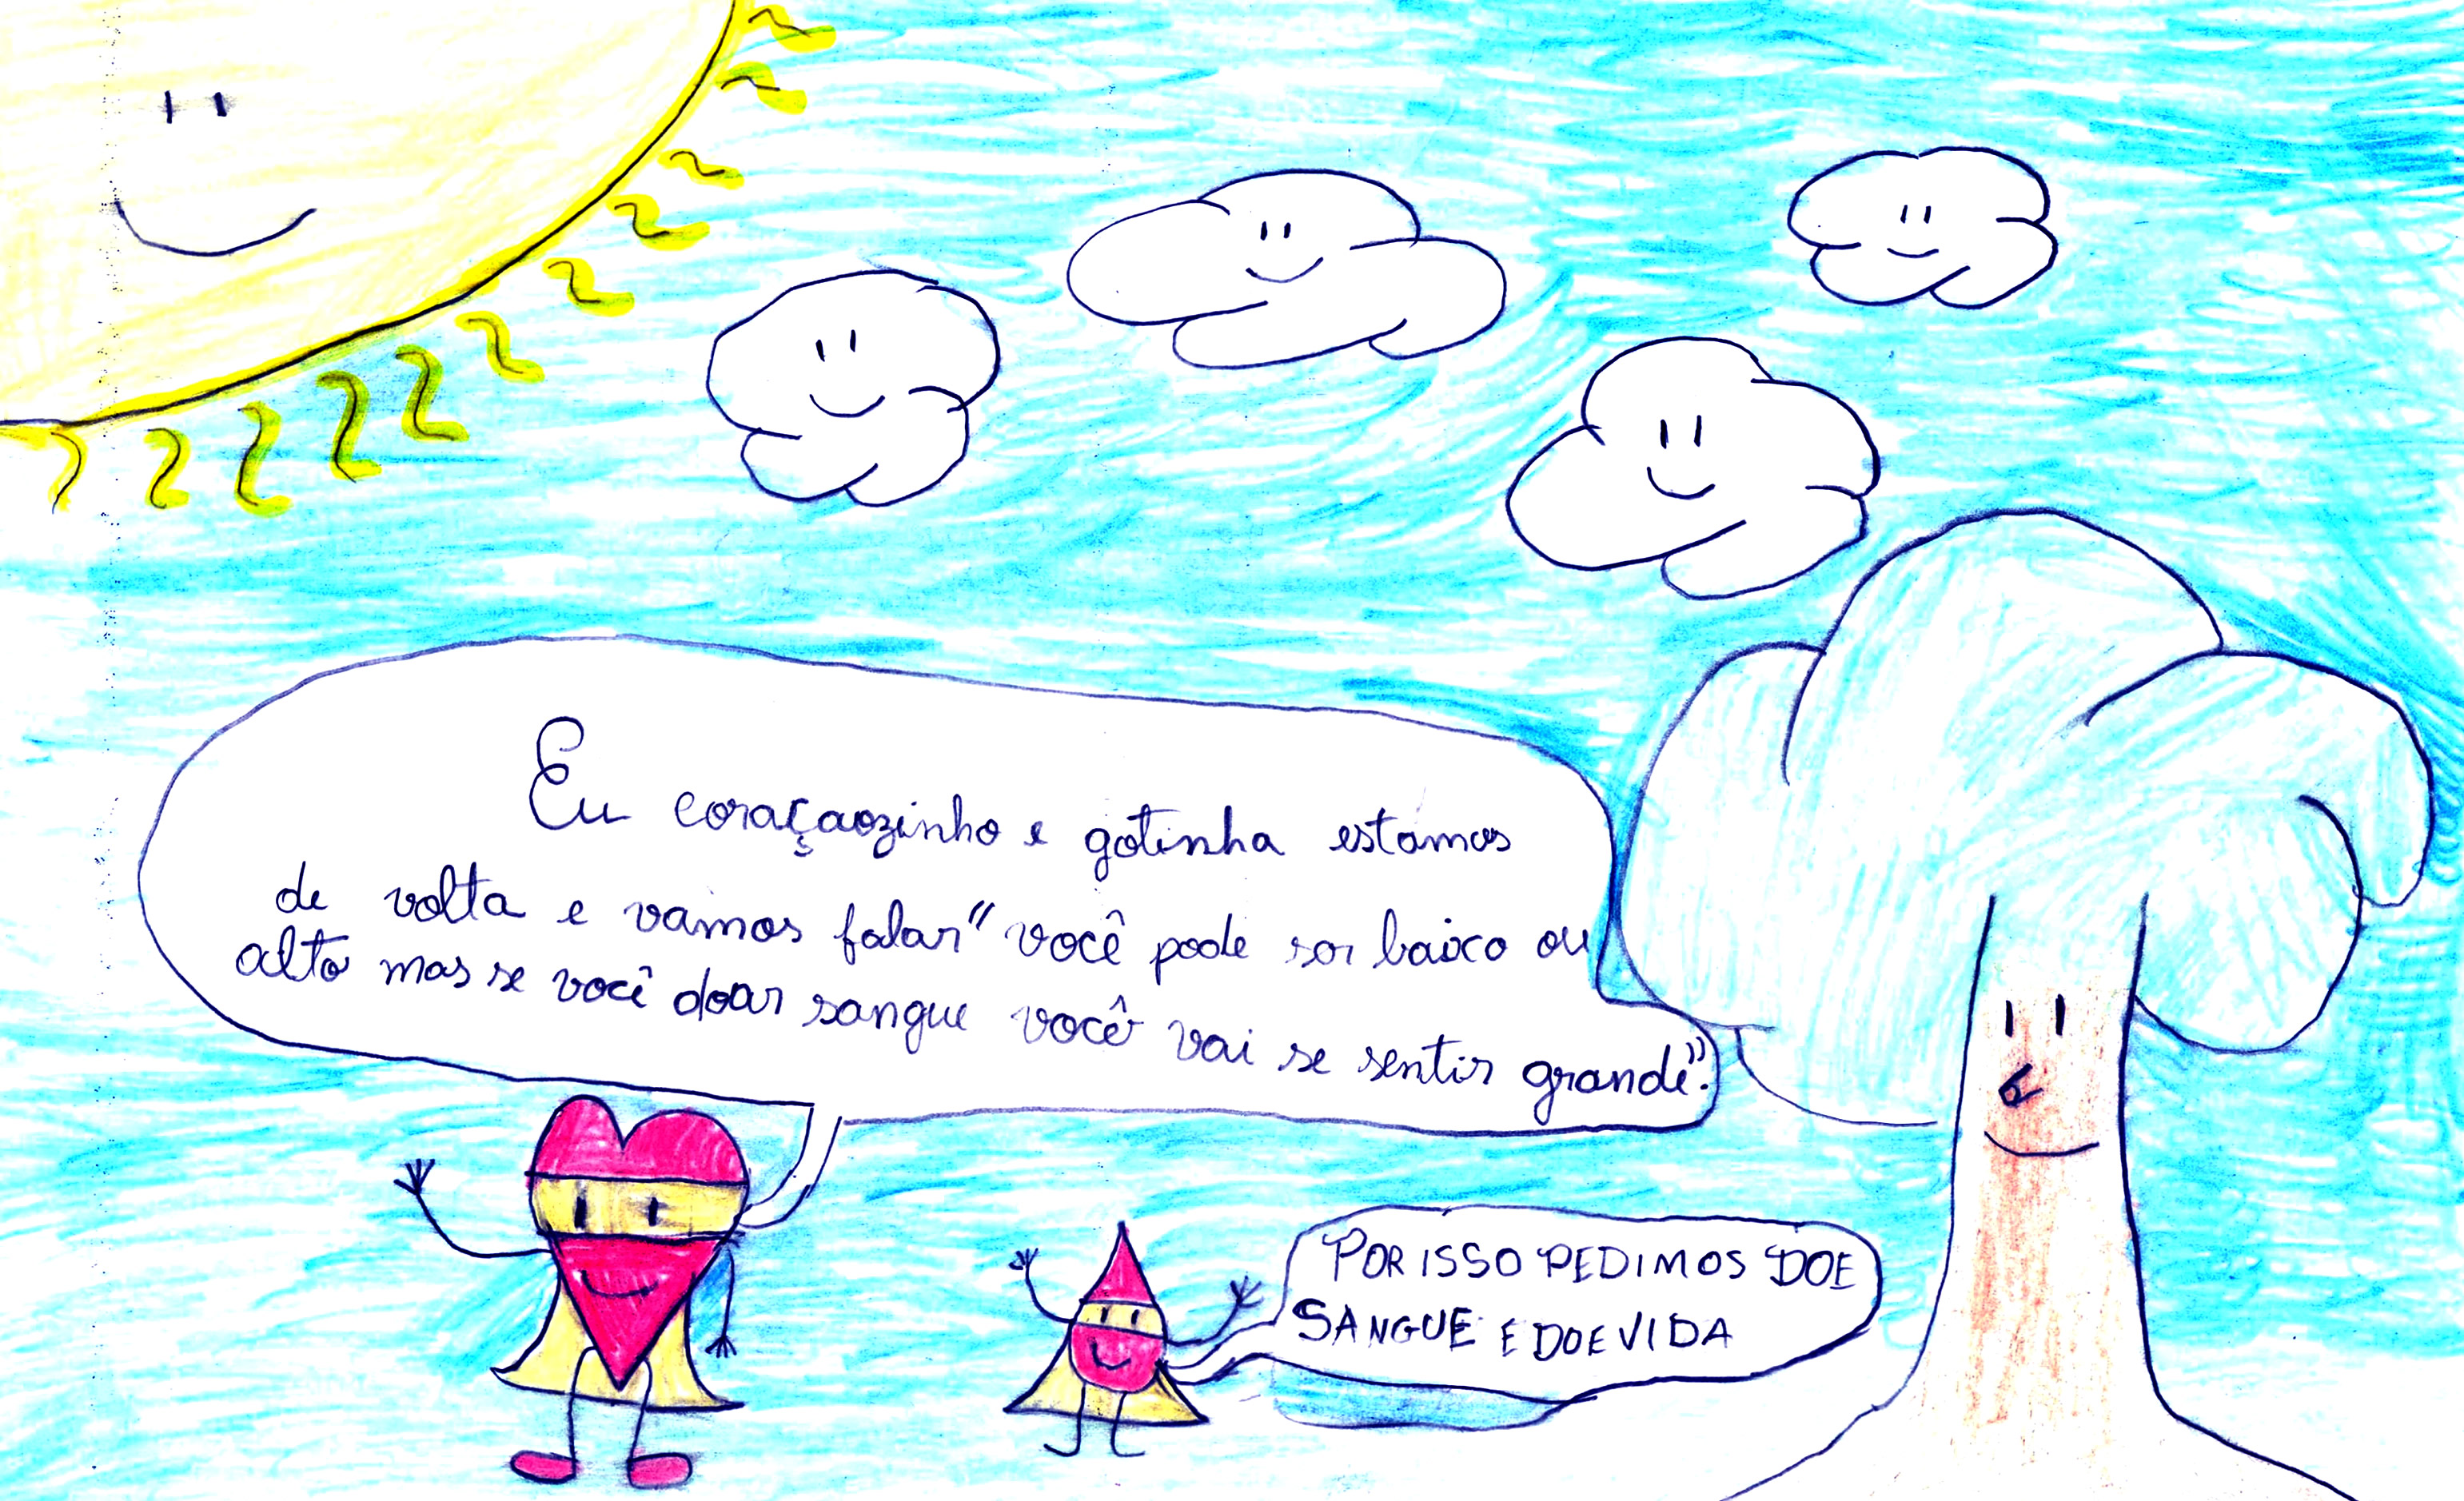 Eu coraçaozinho e gotinha estamos
de volta e vamos falar "você pode ser baixo ou
alto mas se você doar sangue você vai se sentir grande".
POR ISSO PEDIMOS DOE
SANGUE E DOE VIDA